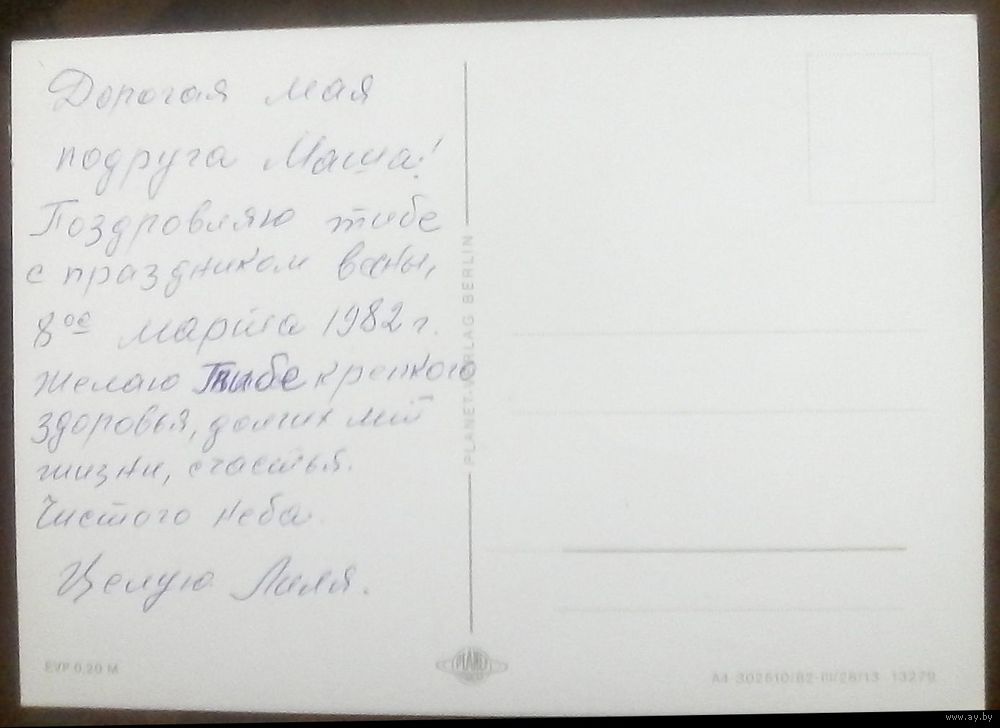 Дорогая мая
подруга Маша!
Поздровляю тибе
с праздником весны,
8ое марта 1982 г.
Желаю Тибе крепкого
здоровья, долгих лет
жизни, счастья.
Чистого неба.
Целую Лиля.
PLANET-VERLAG BERLIN
EVP 0,20 M
PLANET
A4 302610/82-III/26/13 13279
www.ay.by